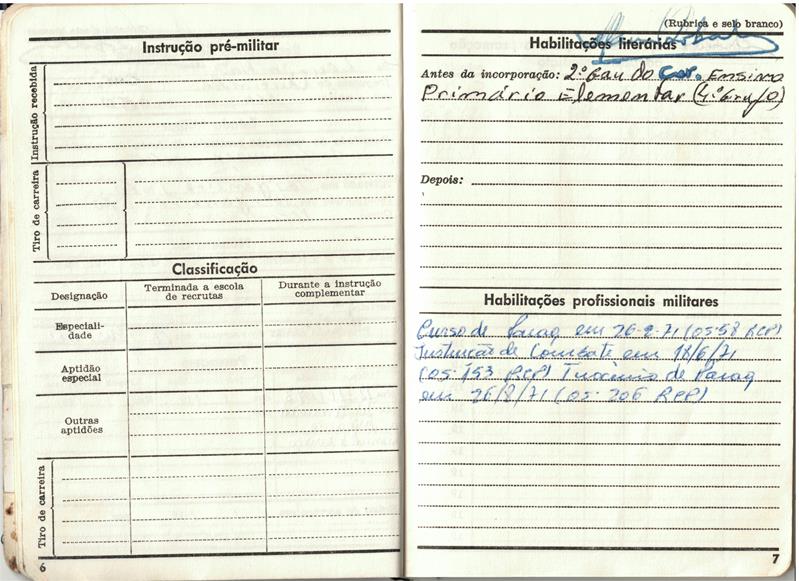 Instrução pré-militar
Instrução recebida
Tiro de carreira
Classificação
Designação
Terminada a escola
de recrutas
Durante a instrução
complementar
Especiali-
dade
Aptidão
especial
Outras
aptidões
Tiro de carreira
6
(Rubrica e selo branco)
Habilitações literárias
Antes da incorporação: 2º Gau do Ensino
Primário Elementar (4º
Depois:
Habilitações profissionais militares
Curso de Paraq em 26-2-71 (OS 58 RCP)
Instrução de Combate em 18/6/71
(OS. 153 RCP) de Paraq
em 26/8/71 (OS. 206 RCP)
7